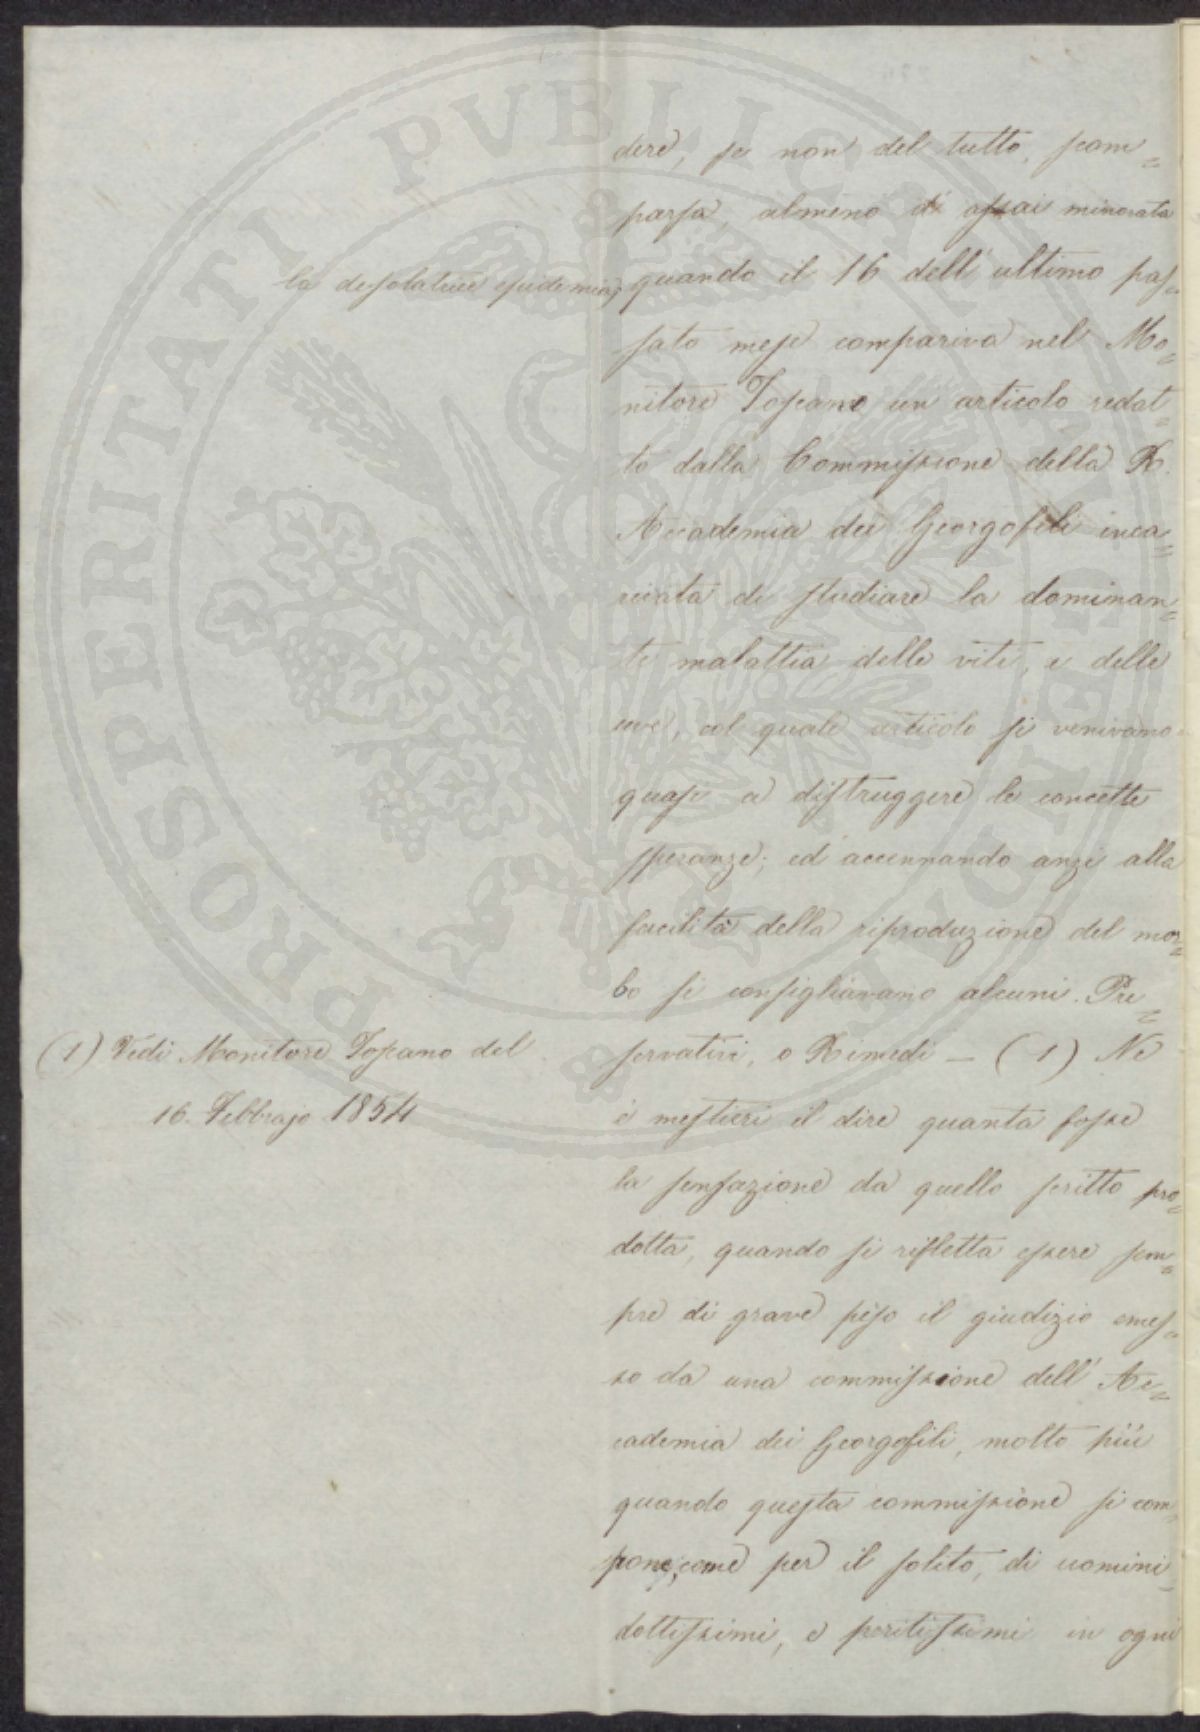 dere, se non del tutto, scom=
parsa, almeno di assai minorata
la desolatrice epidemia, quando il 16 dell'ultimo pas=
sato mese compariva nel Mo=
nitore Toscano un articolo redat=
to dalla Commissione della R.
Accademia dei Georgofili inca=
ricata di studiare la dominan=
te malattia delle viti, e delle
uve, col quale articolo si venivano
quasi a distruggere le concette
speranze; ed accennando anzi alla
facilità della riproduzione del mor=
bo si consigliavano alcuni Pre=
servativi, o Rimedi — (1) Ne
(1) Vedi Monitore Toscano del
16. Febbrajo 1854
è mestieri il dire quanta fosse
la sensazione da quello scritto pro=
dotta, quando si rifletta essere sem=
pre di grave peso il giudizio emes=
so da una commissione dell'Ac=
cademia dei Georgofili, molto più
quando questa commissione si com=
pone, come per il solito, di uomini
dottissimi, e peritissimi in ogni
PROSPERITATI PVBLICAE AVGENDAE